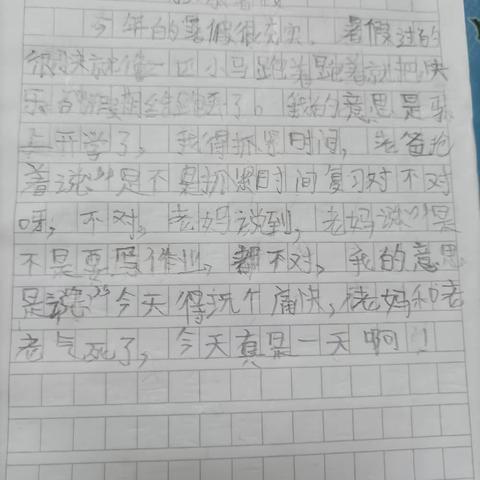 今年的暑假很充实，暑假过的
很快就像一匹小马跑着跑着就把快
乐的假期给跑了。我的意思是马
上开学了，我得抓紧时间，老爸抢
着说“是不是抓紧时间复习对不对
呀，不对，老妈说到，老妈说“是
不是要写作业，不对，我的意思
是说“今天得玩个痛快，老妈和老
爸气死了，今天真是一天啊！